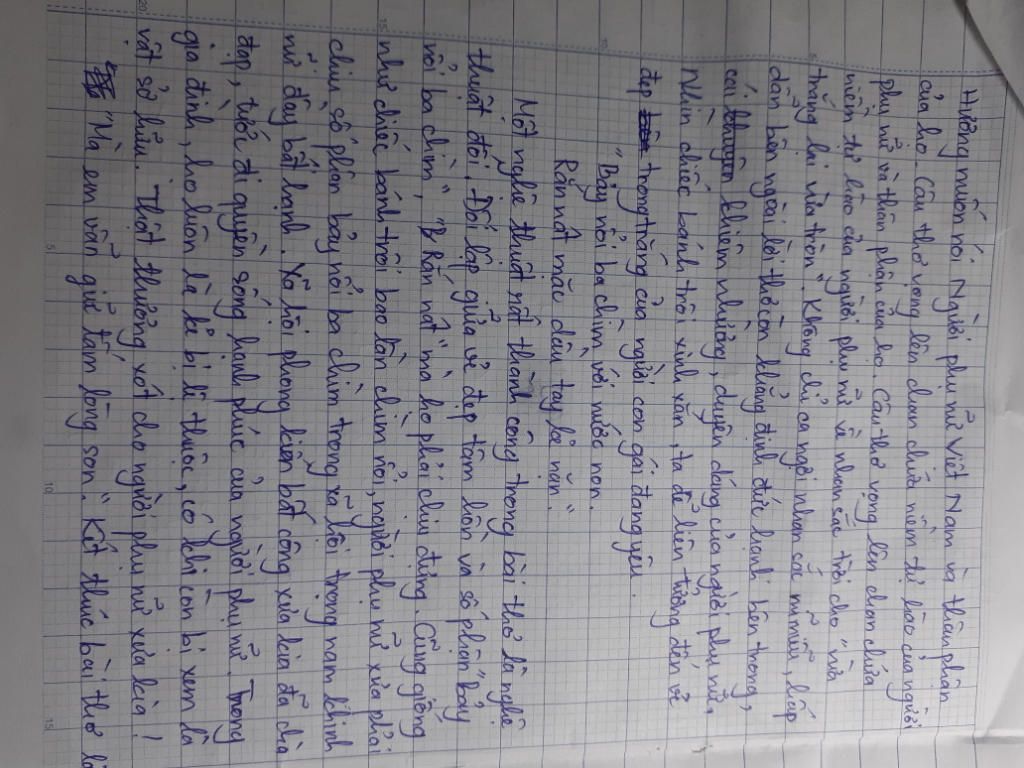 Hương muốn nói Người phụ nữ Việt Nam và thân phận
của họ. Câu thơ vọng lên chan chứa niềm tự hào của người
phụ nữ và thân phận của họ. Câu thơ vọng lên chan chứa
niềm tự hào của người phụ nữ về nhan sắc trời cho "vừa
trắng lại vừa tròn". Không chỉ ca ngợi nhan sắc mĩ miều, hấp
dẫn bên ngoài lời thơ còn khẳng định đức hạnh bên trong,
cái khiêm nhường, duyên dáng của người phụ nữ.
Nhìn chiếc bánh trôi xinh xắn, ta để liên tưởng đến vẻ
đẹp trong trắng của người con gái đáng yêu.
"Bảy nổi ba chìm với nước non
Rắn nát mặc dầu tay kẻ nặn".
Một nghệ thuật nổi thành công trong bài thơ là nghệ
thuật đối. Đối lập giữa vẻ đẹp tâm hồn và số phận "bảy
nổi ba chìm", "Rắn nát" mà họ phải chịu đựng. Cũng giống
như chiếc bánh trôi bao lần chìm nổi, người phụ nữ xưa phải
chịu số phận bảy nổi ba chìm trong xã hội trọng nam khinh
nữ đầy bất hạnh. Xã hội phong kiến bất công xưa kia đã chà
đạp, tước đi quyền sống hạnh phúc của người phụ nữ. Trong
gia đình, họ luôn là kẻ bị lệ thuộc, có khi còn bị xem là
vật sở hữu. Thật thương xót cho người phụ nữ xưa kia!
"Mà em vẫn giữ tấm lòng son." Kết thúc bài thơ là